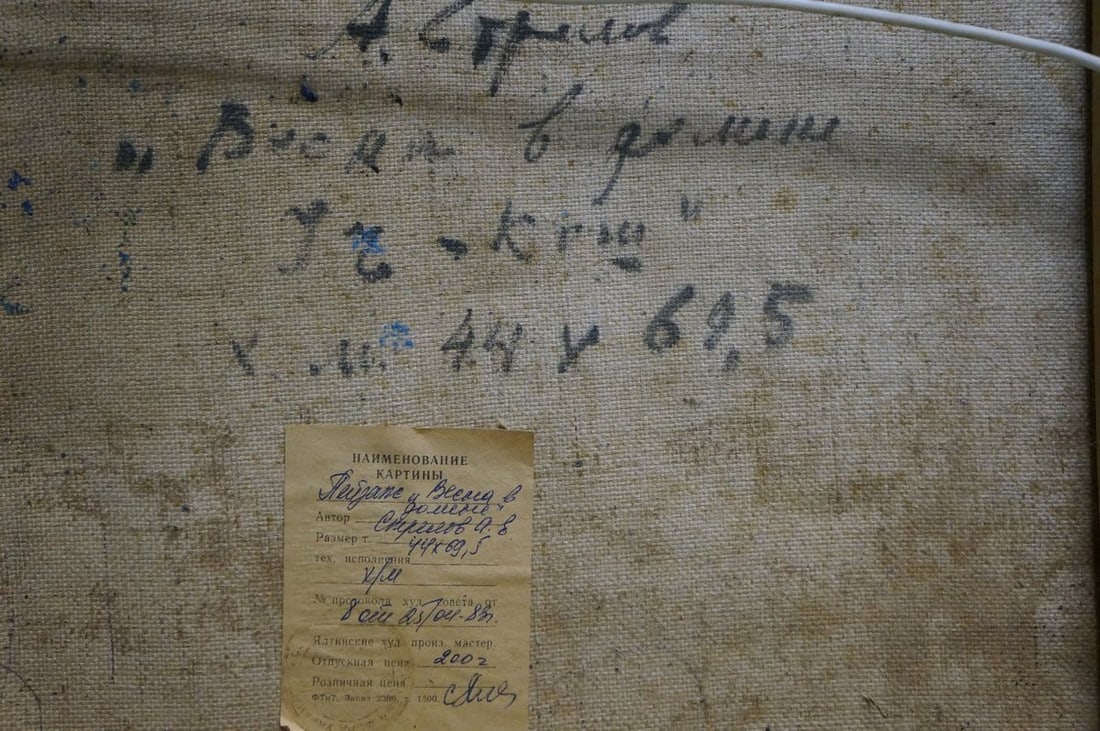 А. Стрелов
„Весна в долине
Уч-Кош"
х. м. 44 х 69,5
НАИМЕНОВАНИЕ
КАРТИНЫ
Пейзаж „Весна в
долине"
Автор Стрелов А. В
Размер т. 44х69,5
тех. исполнения
х/м
№ протокола худ. совета от
8 от 25/04-83г.
Ялтинские худ. произ. мастер.
Отпускная цена 200
Розничная цена
ФТиТ. Заказ 2380, т. 1500.